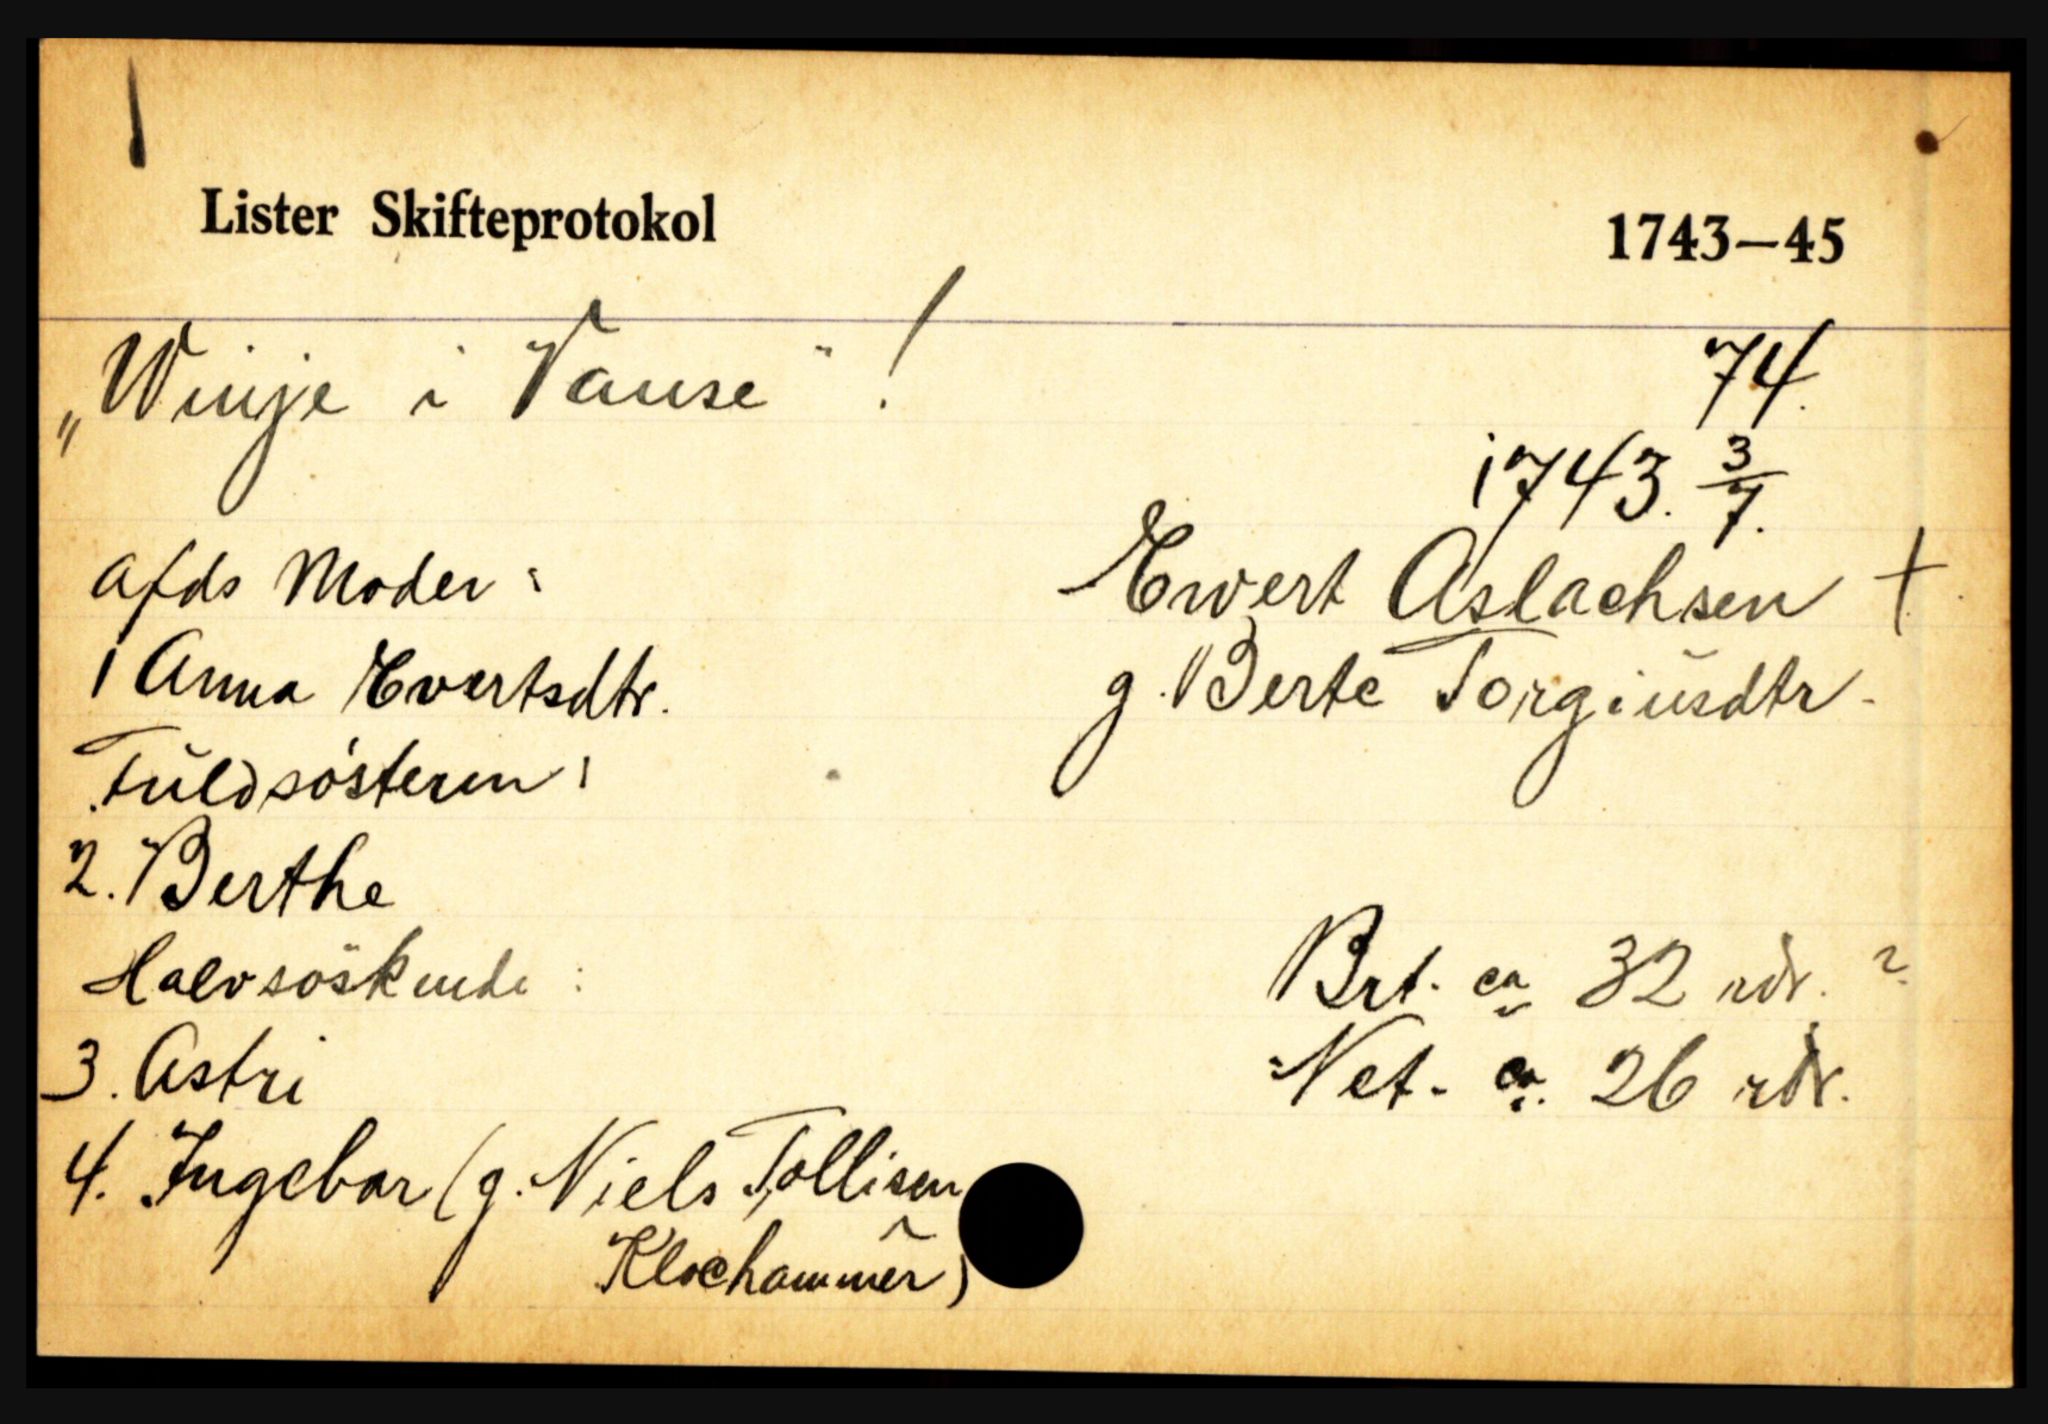 Lister Skifteprotokol 1743—45
„Winje i Vanse" !
74.
1743. 3/7.
Ewert Aslachsen †
g. Berte Torgiusdtr.
afds Moder:
1 Anna Evertsdtr.
Fuldsösteren:
2. Berthe
Halvsöskende:
3. Astri
4. Ingebor (g. Niels Tollisen
Klochammer)
Brt. ca 32 rdr. ?
Net. ca. 26 rdr.